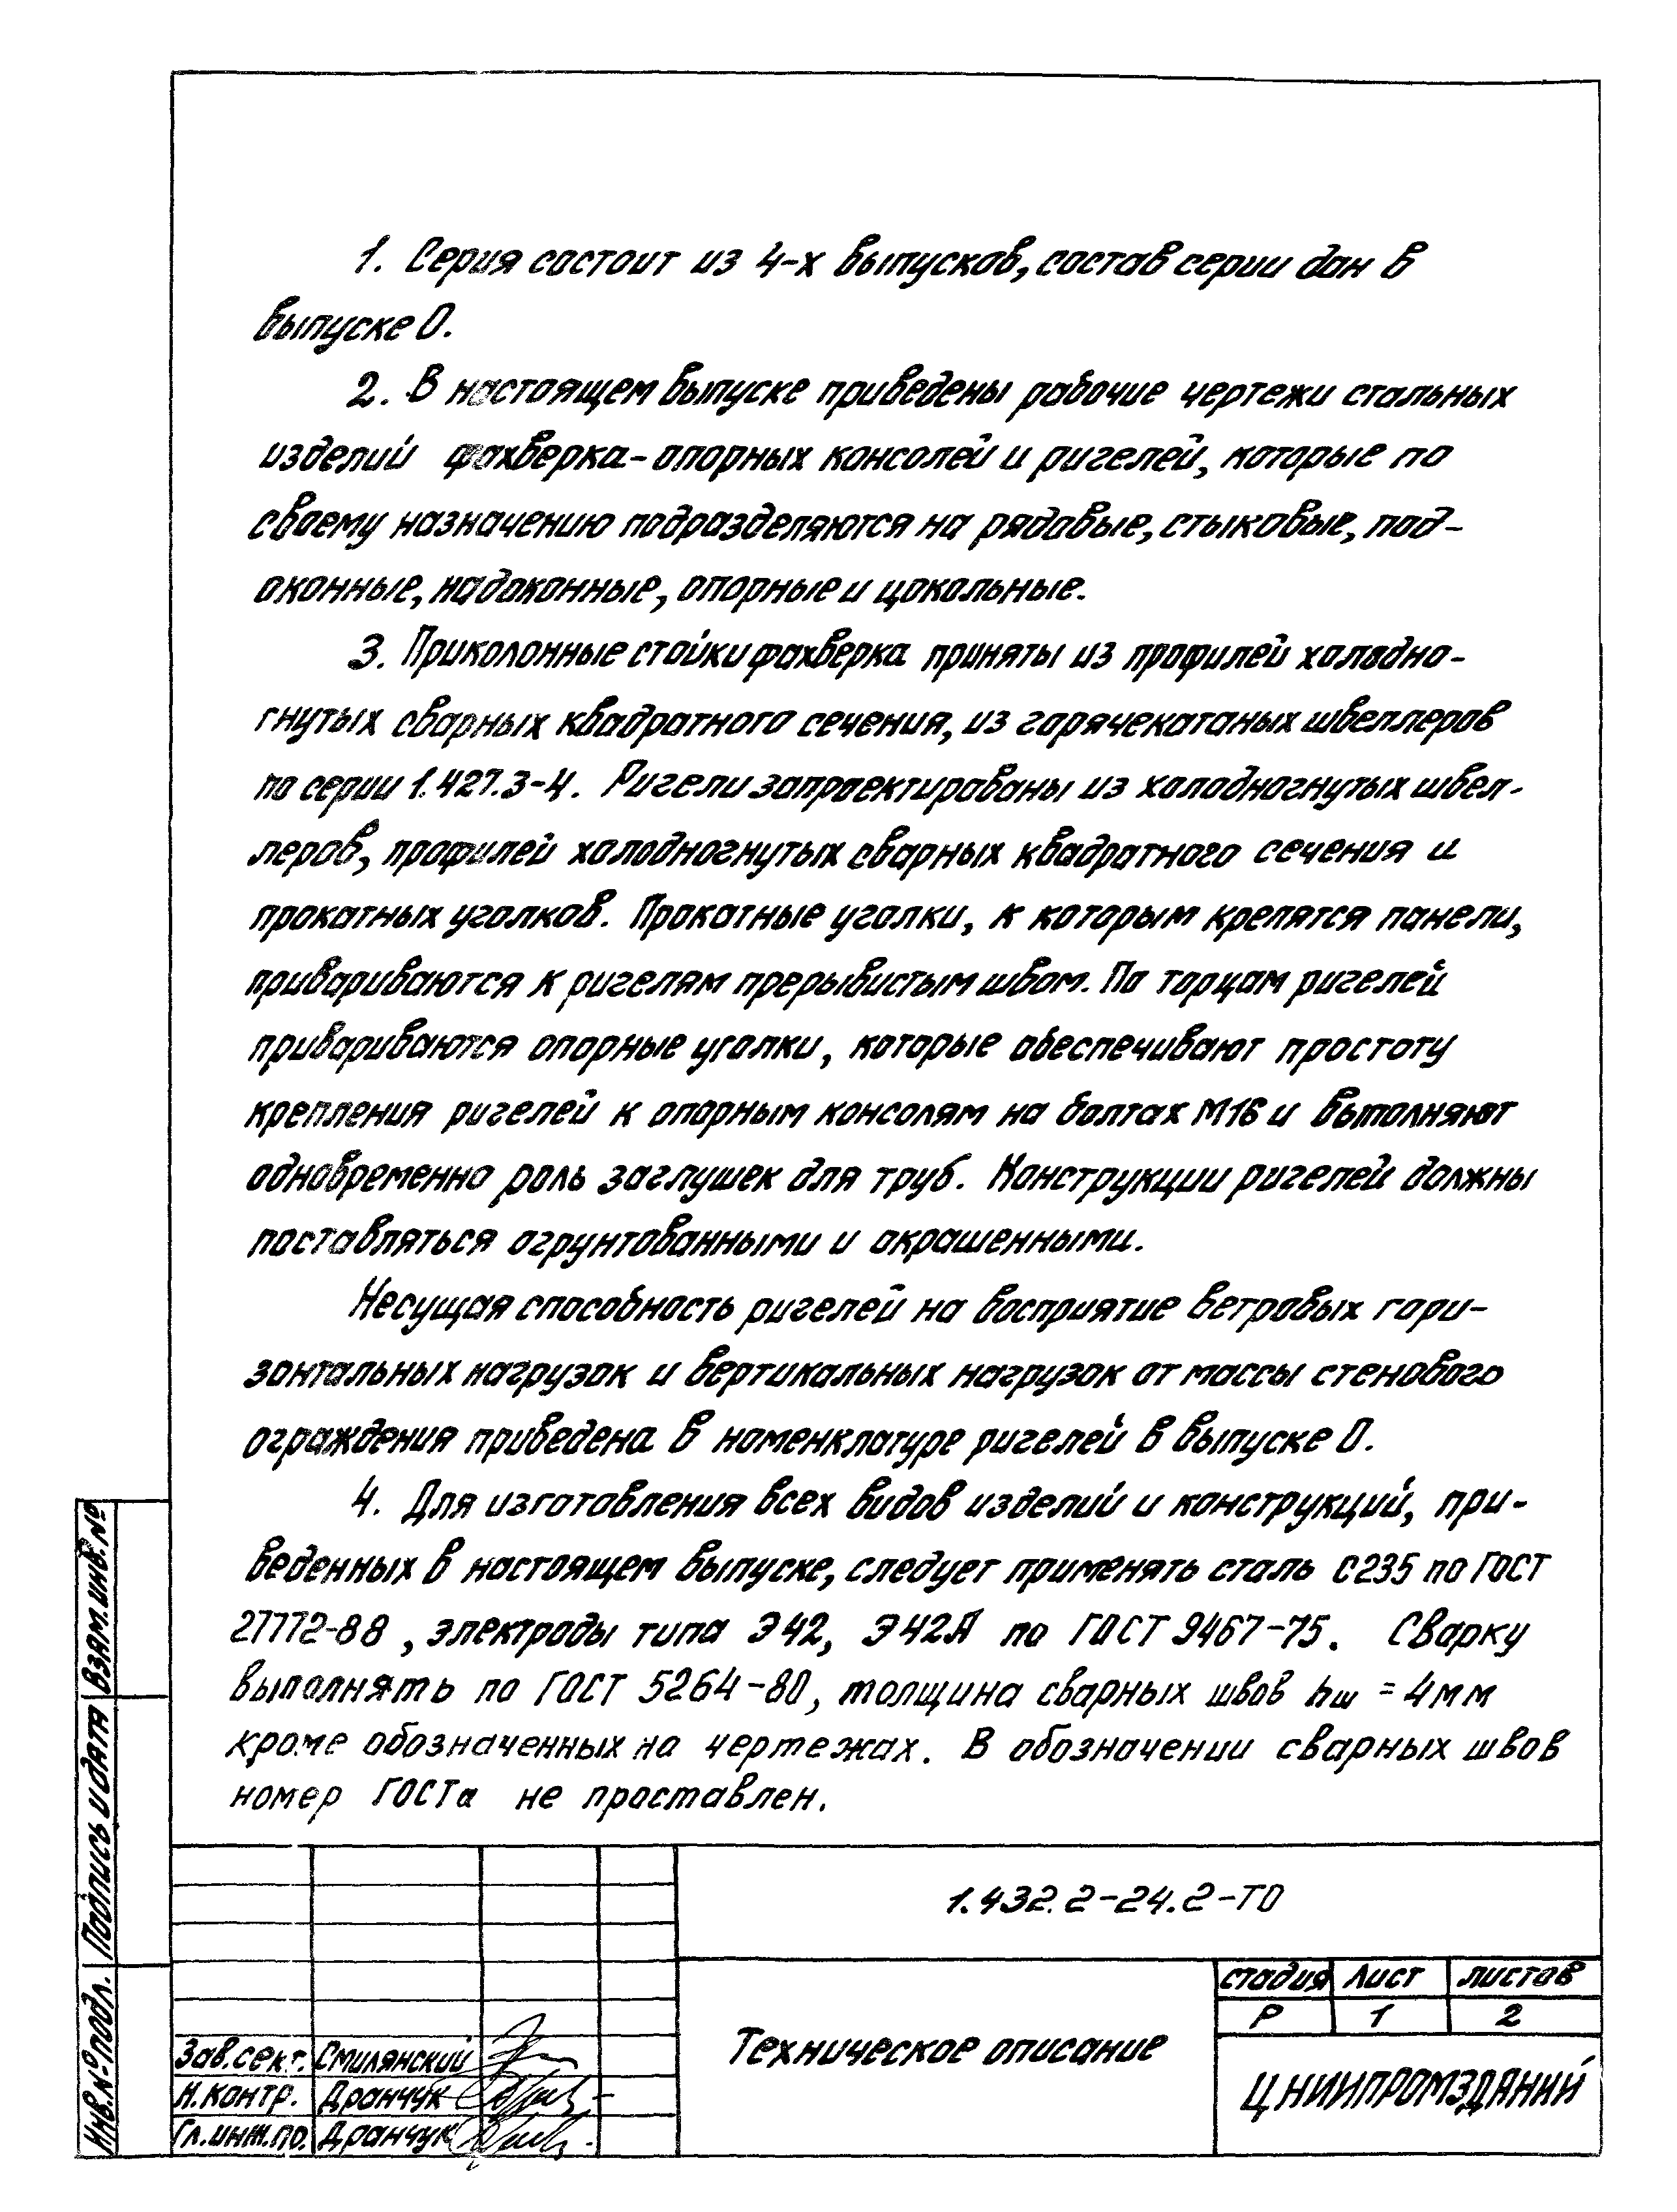 1. Серия состоит из 4-х выпусков, состав серии дан в
выпуске 0.
2. В настоящем выпуске приведены рабочие чертежи стальных
изделий фахверка-опорных консолей и ригелей, которые по
своему назначению подразделяются на рядовые, стыковые, под-
оконные, надоконные, опорные и цокольные.
3. Приколонные стойки фахверка приняты из профилей холодно-
гнутых сварных квадратного сечения, из горячекатаных швеллеров
по серии 1.427.3-4. Ригели запроектированы из холодногнутых швел-
леров, профилей холодногнутых сварных квадратного сечения и
прокатных уголков. Прокатные уголки, к которым крепятся панели,
привариваются к ригелям прерывистым швом. По торцам ригелей
привариваются опорные уголки, которые обеспечивают простоту
крепления ригелей к опорным консолям на болтах М16 и выполняют
одновременно роль заглушек для труб. Конструкции ригелей должны
поставляться огрунтованными и окрашенными.
Несущая способность ригелей на восприятие ветровых гори-
зонтальных нагрузок и вертикальных нагрузок от массы стенового
ограждения приведена в номенклатуре ригелей в выпуске 0.
4. Для изготовления всех видов изделий и конструкций, при-
веденных в настоящем выпуске, следует применять сталь С235 по ГОСТ
27772-88, электроды типа Э42, Э42А по ГОСТ 9467-75. Сварку
выполнять по ГОСТ 5264-80, толщина сварных швов hш = 4мм
кроме обозначенных на чертежах. В обозначении сварных швов
номер ГОСТа не проставлен.
Инв.№ подл. Подпись и дата Взам.инв.№
1.432.2-24.2-ТО
Техническое описание
стадия Лист листов
Р 1 2
ЦНИИПРОМЗДАНИЙ
Зав.сект. Смилянский
Н.контр. Дранчук
Гл.инж.пр. Дранчук